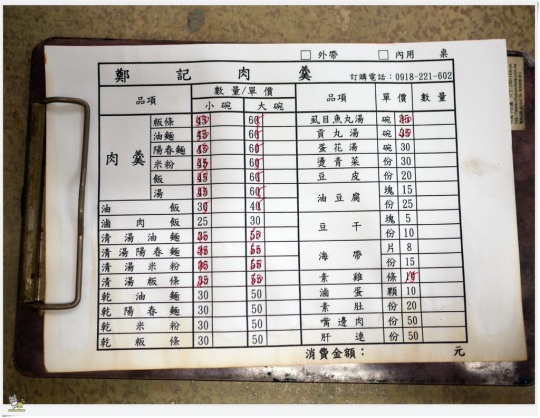 外帶 內用 桌
鄭記肉羹 訂購電話：0918-221-602
品項 數量/單價 品項 單價 數量
小碗 大碗
肉羹 粄條 60 虱目魚丸湯 碗
油麵 60 貢丸湯 碗
陽春麵 60 蛋花湯 碗 30
米粉 60 燙青菜 份 30
飯 60 豆皮 份 20
湯 60 油豆腐 塊 15
油飯 30 40 份 25
滷肉飯 25 30 豆干 塊 5
清湯油麵 份 10
清湯陽春麵 海帶 片 8
清湯米粉 份 15
清湯粄條 素雞 條
乾油麵 30 50 滷蛋 顆 10
乾陽春麵 30 50 素肚 份 20
乾米粉 30 50 嘴邊肉 份 50
乾粄條 30 50 肝連 份 50
消費金額： 元